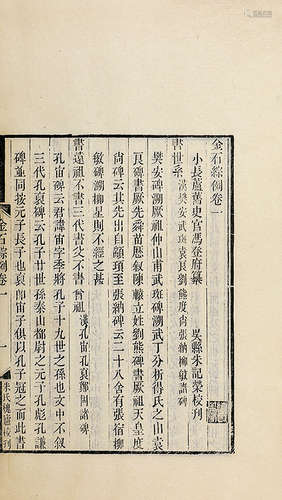 金石綜例卷一
小長蘆舊史官馮登府纂　吳縣朱記榮校刊
書世系　漢樊安武斑袁良劉熊度尚張納柳敏諸碑
樊安碑溯厥祖仲山甫武斑碑溯武丁分析得氏之山袁
良碑書厥先舜苗歷叙陳轅立姓劉熊碑書厥祖天皇度
尚碑云其先出自顓頊至張納碑云二十八舍有張宿柳
敏碑溯柳星則不經之甚
書遠祖不書三代書父不書曾祖　漢孔宙孔褒鄭固諸碑
孔宙碑云君諱宙字季將孔子十九世之孫也文中不叙
三代孔褒碑云孔子廿世孫泰山都尉之元子孔彪孔謙
碑並同按元子長子也褒爲宙子俱以孔子冠之而此書
金石綜例卷一
一
朱氏槐廬校刊